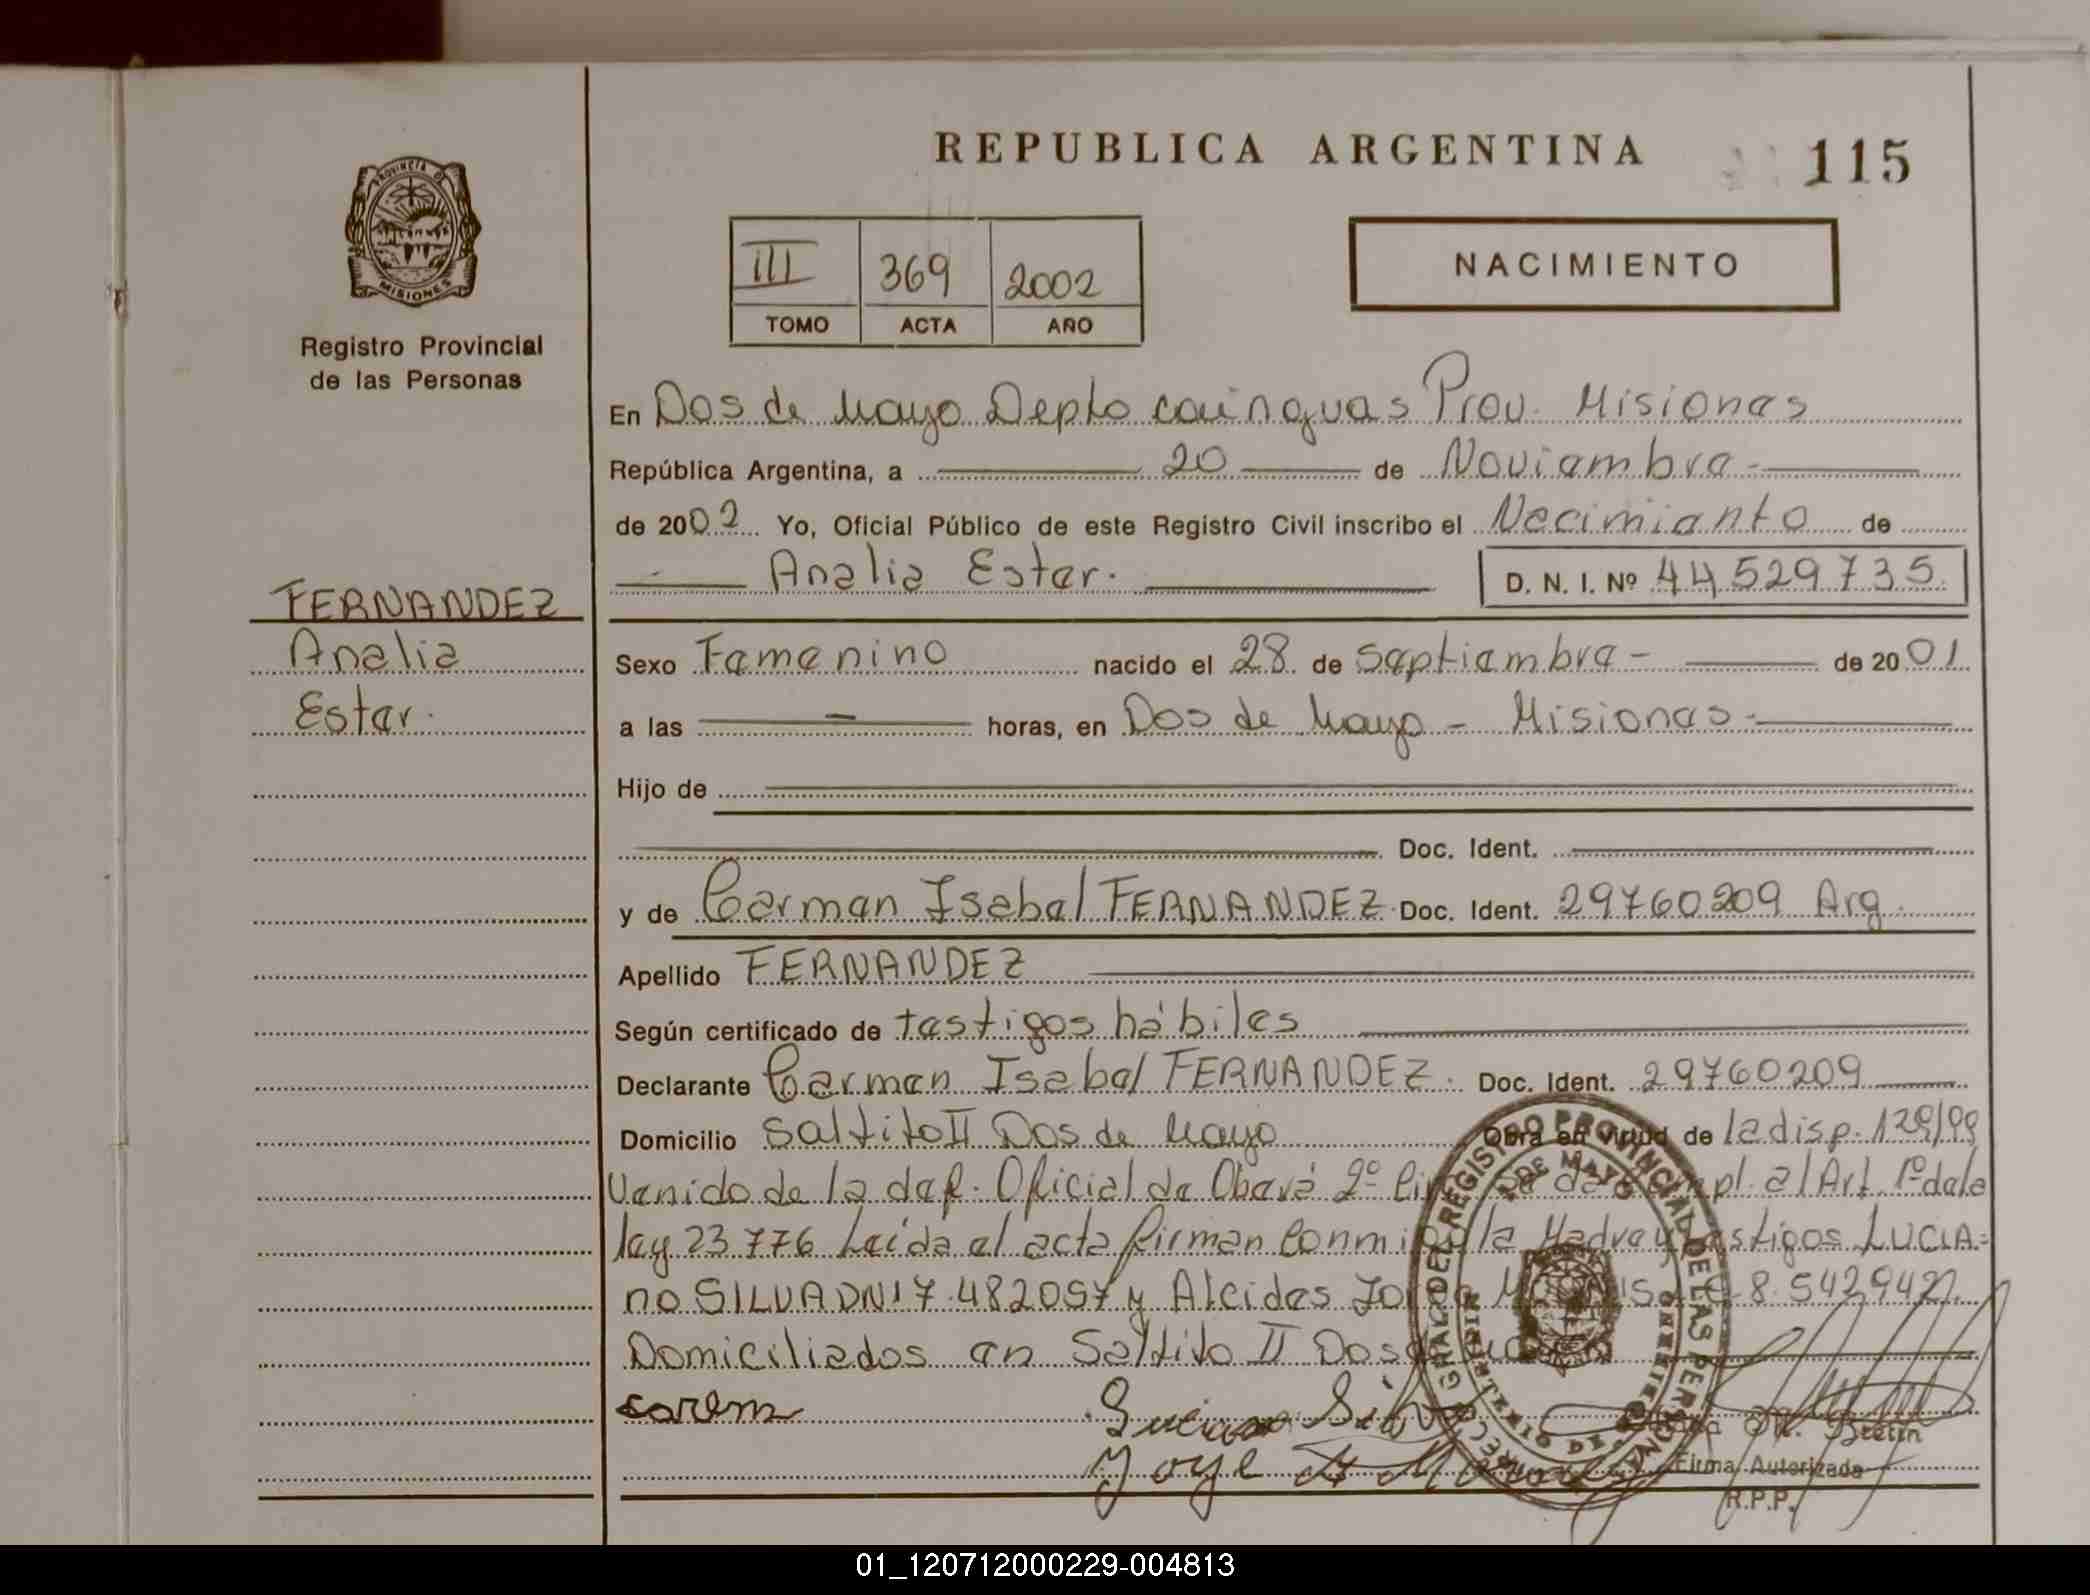 REPUBLICA ARGENTINA
115
PROVINCIA DE
MISIONES
Registro Provincial
de las Personas
III 369 2002
TOMO ACTA AÑO
NACIMIENTO
En Dos de Mayo Depto cainguas Prov. Misiones
República Argentina, a 20 de Noviembre -
de 2002 Yo, Oficial Público de este Registro Civil inscribo el Necimiento de
Analia Ester. D. N. I. Nº 44 529 735
FERNANDEZ
Analia
Ester.
Sexo Femenino nacido el 28 de septiembre - de 2001
a las - horas, en Dos de Mayo - Misiones -
Hijo de
Doc. Ident.
y de Carmen Isabel FERNANDEZ Doc. Ident. 29760209 Arg.
Apellido FERNANDEZ
Según certificado de testigos hábiles
Declarante Carmen Isabel FERNANDEZ. Doc. Ident. 29760209
Domicilio saltito II Dos de Mayo Obra en virtud de la disp. 129/99
Venido de la def. Oficial de Oberá 2º al Art. 1º de la
ley 23 776 Leída el acta firman Conmigo la Madre y testigos LUCIA=
no SILVA DNI 7.482057 y Alcides 8.5429427
Domiciliados en Saltito II Dos de
carem
Luciano Silva
Firma Autorizada
R.P.P.
01_120712000229-004813